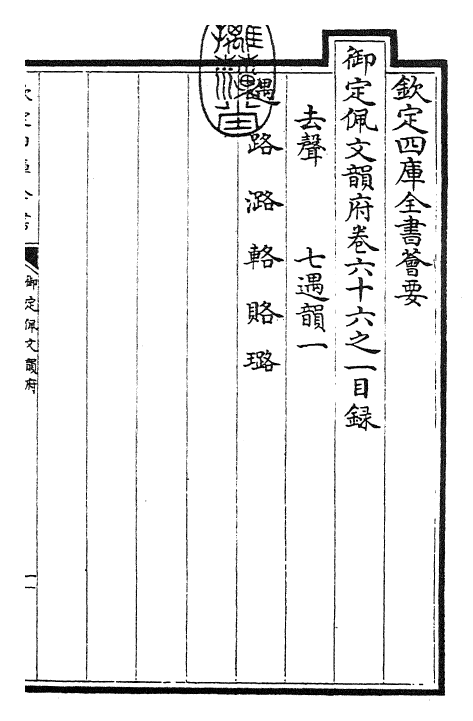 欽定四庫全書薈要
御定佩文韻府卷六十六之一目録
去聲　七遇韻一
遇路潞輅賂璐
御定佩文韻府
一